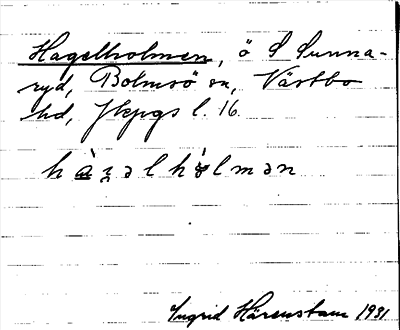 Hagelholmen, ö S Sunna-
ryd, Bolmsö sn, Västbo
hd, Jkpgs l. 16.
hàgəlhòlmən
Ingrid Härenstam 1931